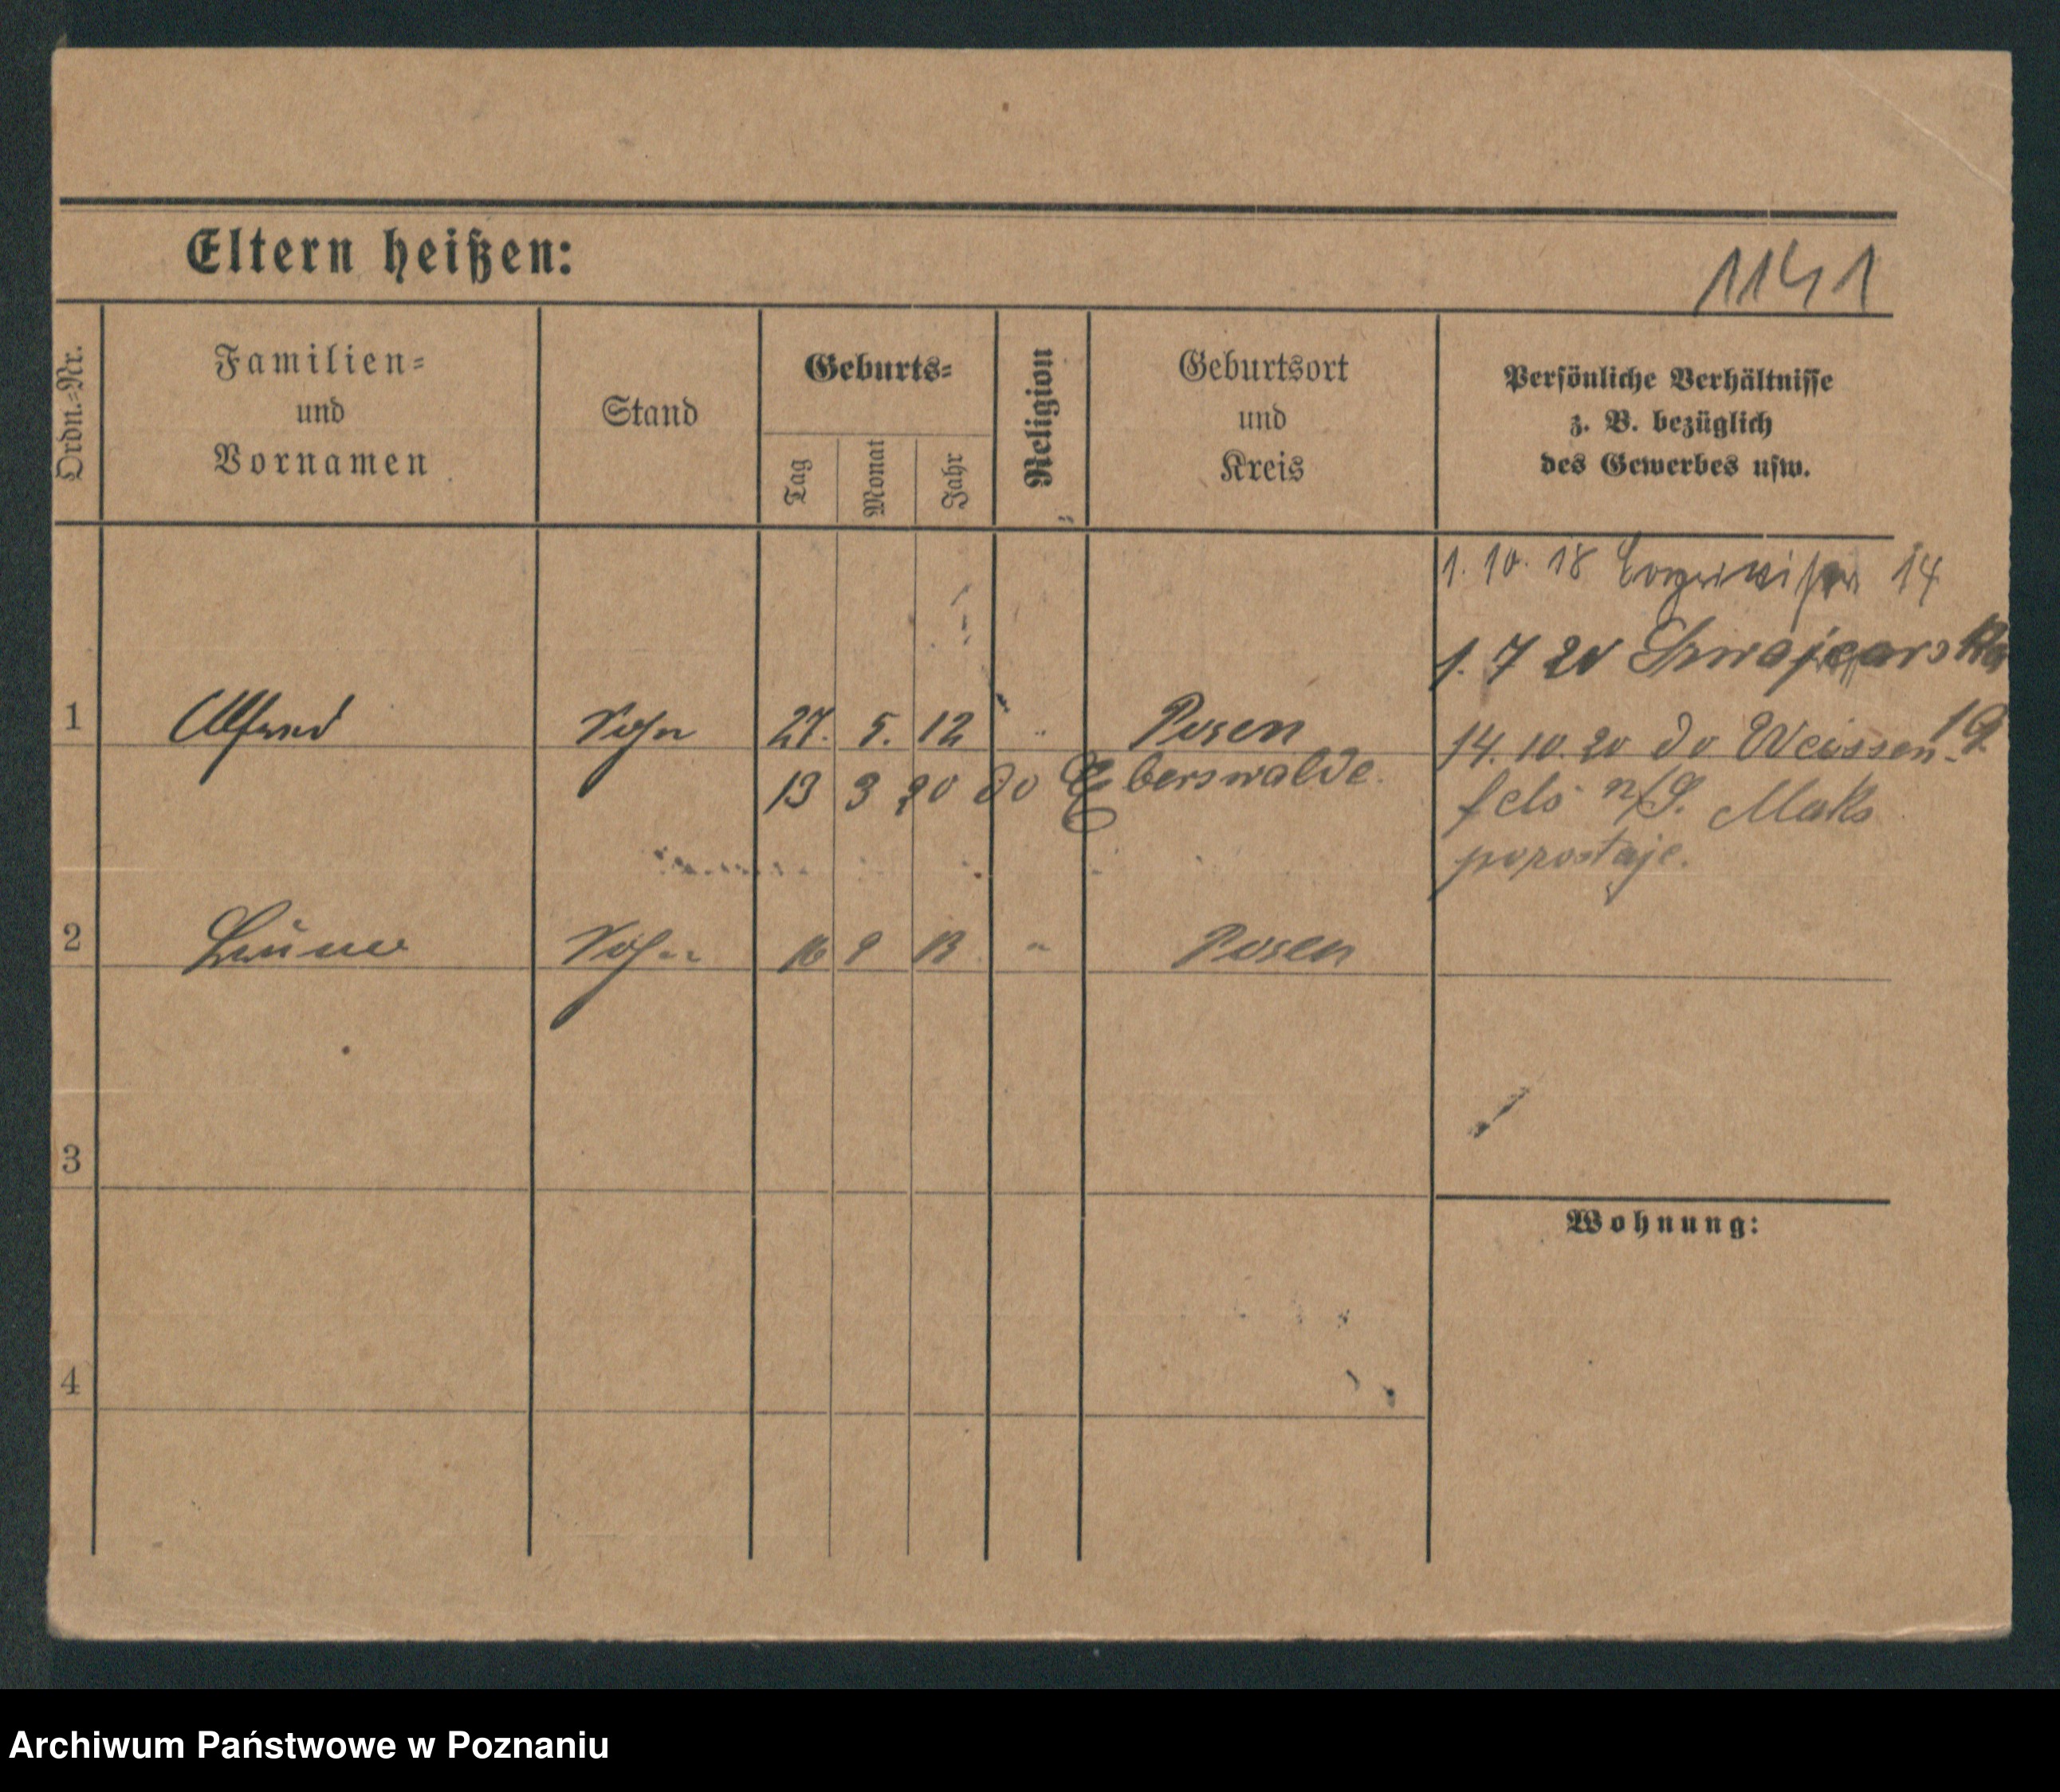 Eltern heißen:
1141
Ordn.-Nr.
Familien-
und
Vornamen
Stand
Geburts-
Tag
Monat
Jahr
Religion
Geburtsort
und
Kreis
Persönliche Verhältnisse
z. B. bezüglich
des Gewerbes usw.
1. 10. 18 14
1. 7 20 Szwajcarska
19.
1 Alfred Sohn 27. 5. 12 " Posen
14. 10. 20 do Weissen-
13 3 20 do Eberswalde.
fels n/S. Maks
pozostaje.
2 Sohn 16 9 13 " Posen
3
Wohnung:
4
Archiwum Państwowe w Poznaniu